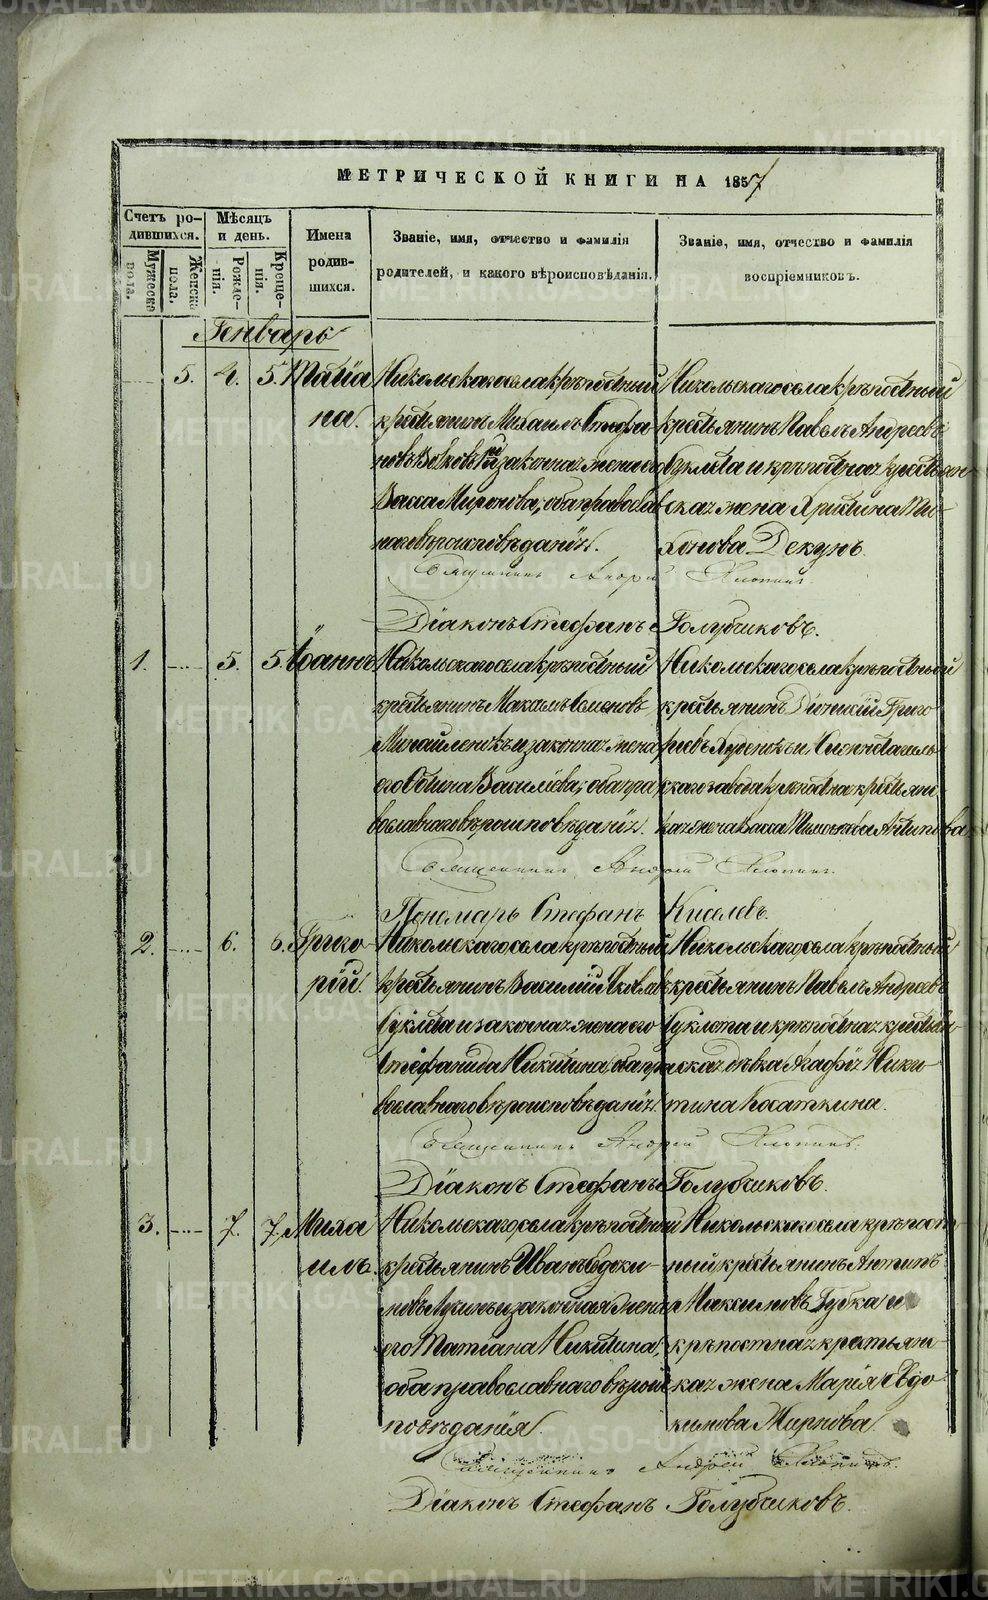 МЕТРИЧЕСКОЙ КНИГИ НА 1857
Счетъ родившихся.
Мѣсяцъ и день.
Имена родившихся.
Званіе, имя, отчество и фамилія родителей, и какого вѣроисповѣданія.
Званіе, имя, отчество и фамилія воспріемниковъ.
Мужеска пола.
Женска пола.
Рожденія.
Крещенія.
Генварь
5. 4. 5. Татіана.
Никольскаго села крѣпостный
крестьянинъ Михаилъ Стефановъ
законная жена
Васса Миронова, оба православнаго
вѣроисповѣданія.
Никольскаго села крѣпостный
крестьянинъ Павелъ Андреевъ
Суклета и крѣпостная крестьянская
жена Христина
Декунъ.
Священникъ Андрей
Діаконъ Стефанъ Голубчиковъ.
1. 5. 5. Іоаннъ
Никольскаго села крѣпостный
крестьянинъ Максимъ Семеновъ
Михайленокъ и законная жена
его Васильева, оба православнаго
вѣроисповѣданія.
Никольскаго села крѣпостный
крестьянинъ Григорьевъ
и Нижнетагильскаго
завода крѣпостная крестьянская
жена Васса Антипова
Священникъ Андрей
Пономарь Стефанъ Киселевъ.
2. 6. 6. Григорій.
Никольскаго села крѣпостный
крестьянинъ Василій
Суклета и законная жена его
Стефанида Никитина, оба православнаго
вѣроисповѣданія.
Никольскаго села крѣпостный
крестьянинъ Павелъ Андреевъ
Суклета и крѣпостная крестьянская
дѣвка Агафія Никитина
Косаткина.
Священникъ Андрей
Діаконъ Стефанъ Голубчиковъ.
3. 7. 7. Михаилъ.
Никольскаго села крѣпостный
крестьянинъ Иванъ Евдокимовъ
и законная жена
его Татіана Никитина,
оба православнаго вѣроисповѣданія.
Никольскаго села крѣпостный
крестьянинъ Антипъ
Максимовъ Губка и
крѣпостная крестьянская
жена Марія Евдокимова
Священникъ Андрей
Діаконъ Стефанъ Голубчиковъ.
METRIKI.GASO-URAL.RU